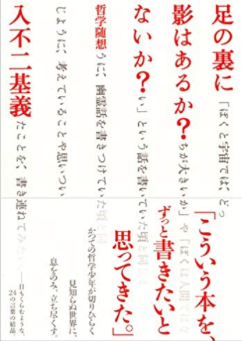 足の裏に
ぼくと宇宙では、どっ
影はあるか?
ちが大きいか」や「ぼくは人間
ないか?
い」という話を書いていた頃
哲学随想
うに、幽霊話を書きつけていた頃と同
じように、考えていることや思いつい
入不二基義
たことを、書き連ねてみたい
「こういう本を、
ずっと書きたいと
思ってきた。」
かつての哲学少年が切りひらく
見知らぬ世界に、
息をのみ、立ち尽くす。
──目もくらむような、
24の言葉の結晶。